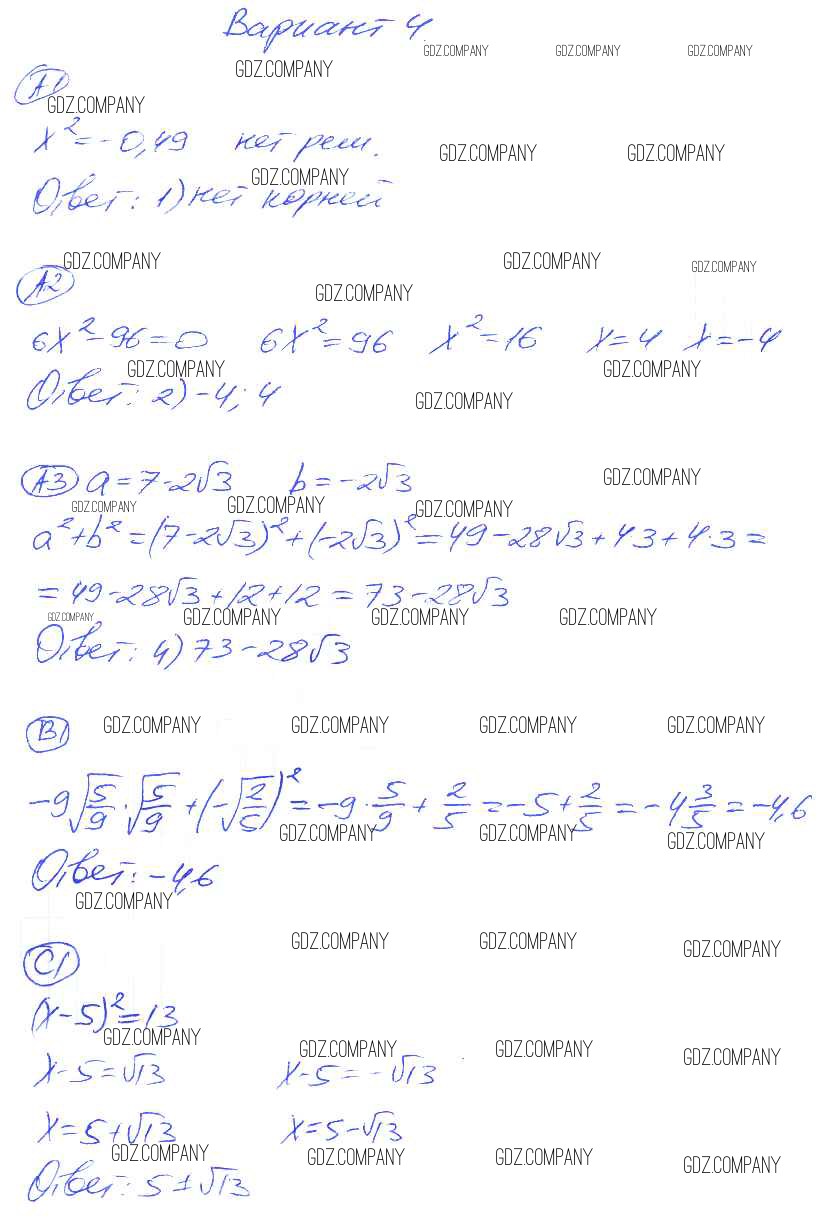 Вариант 4
GDZ.COMPANY GDZ.COMPANY GDZ.COMPANY
GDZ.COMPANY
А1
GDZ.COMPANY
x² = -0,49 нет реш.
GDZ.COMPANY GDZ.COMPANY
GDZ.COMPANY
Ответ: 1) нет корней
GDZ.COMPANY GDZ.COMPANY GDZ.COMPANY
А2
GDZ.COMPANY
6x² - 96 = 0 6x² = 96 x² = 16 x = 4 x = -4
GDZ.COMPANY GDZ.COMPANY
Ответ: 2) -4; 4
GDZ.COMPANY
А3 a = 7 - 2√3 b = -2√3
GDZ.COMPANY
GDZ.COMPANY GDZ.COMPANY GDZ.COMPANY
a² + b² = (7 - 2√3)² + (-2√3)² = 49 - 28√3 + 4·3 + 4·3 =
= 49 - 28√3 + 12 + 12 = 73 - 28√3
GDZ.COMPANY GDZ.COMPANY GDZ.COMPANY GDZ.COMPANY
Ответ: 4) 73 - 28√3
В1
GDZ.COMPANY GDZ.COMPANY GDZ.COMPANY GDZ.COMPANY
-9√(5/9) · √(5/9) + (-√(2/5))² = -9 · 5/9 + 2/5 = -5 + 2/5 = -4 3/5 = -4,6
GDZ.COMPANY GDZ.COMPANY GDZ.COMPANY
Ответ: -4,6
GDZ.COMPANY
GDZ.COMPANY GDZ.COMPANY GDZ.COMPANY
С1
(x - 5)² = 13
GDZ.COMPANY GDZ.COMPANY GDZ.COMPANY GDZ.COMPANY
x - 5 = √13 x - 5 = -√13
x = 5 + √13 x = 5 - √13
GDZ.COMPANY GDZ.COMPANY GDZ.COMPANY GDZ.COMPANY
Ответ: 5 ± √13